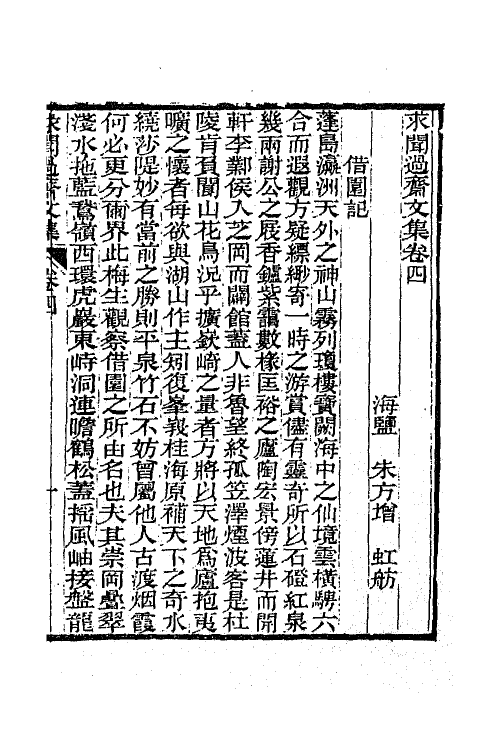 求聞過齋文集卷四
海鹽 朱方增 虹舫
借園記
蓬島瀛洲天外之神山霧列瓊樓寶闕海中之仙境雲橫騁六
合而遐觀方疑縹緲寄一時之游賞儘有靈奇所以石磴紅泉
幾兩謝公之屐香鑪紫靄數椽匡裕之廬陶宏景傍蓮井而開
軒李鄴侯入芝岡而闢館蓋人非魯望終孤笠澤煙波客是杜
陵肯負閬山花鳥況乎擴嶔崎之量者方將以天地爲廬抱夷
曠之懷者每欲與湖山作主矧復峯峩桂海原補天下之奇水
繞莎隄妙有當前之勝則平泉竹石不妨曾屬他人古渡烟霞
何必更分術界此梅生觀察借園之所由名也夫其崇岡疊翠
淺水拖藍鵞嶺西環虎巖東峙洞連瞻鶴松蓋搖風岫接盤龍
求聞過齋文集 卷四 一